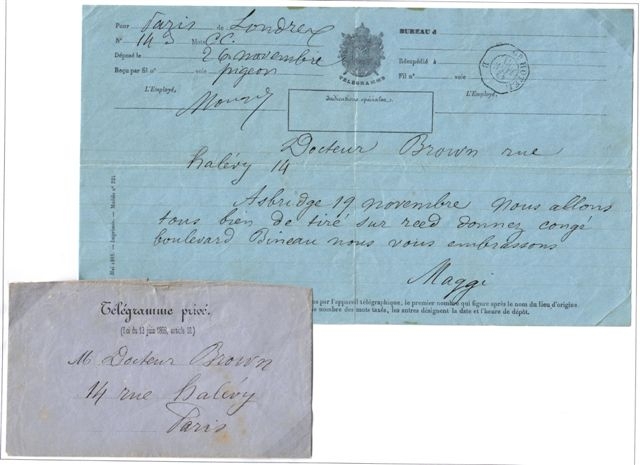 Pour Paris de Londres
N° 143 Mots CC.
Déposé le 26 novembre
Reçu par fil n° voie pigeon
L'Employé,
TÉLÉGRAMME
BUREAU d
Réexpédié à
Fil n° voie
L'Employé,
Indications spéciales.
Docteur Brown rue
halévy 14
Asbridge 19 novembre Nous allons
tous bien de tiré sur reed donnez congé
boulevard Bineau nous vous embrassons
Maggi
es par l'appareil télégraphique, le premier nombre qui figure après le nom du lieu d'origine
le nombre des mots taxés, les autres désignent la date et l'heure de dépôt.
Télégramme privé.
(Loi du 13 juin 1866, article 10.)
M. Docteur Brown
14 rue halévy
Paris